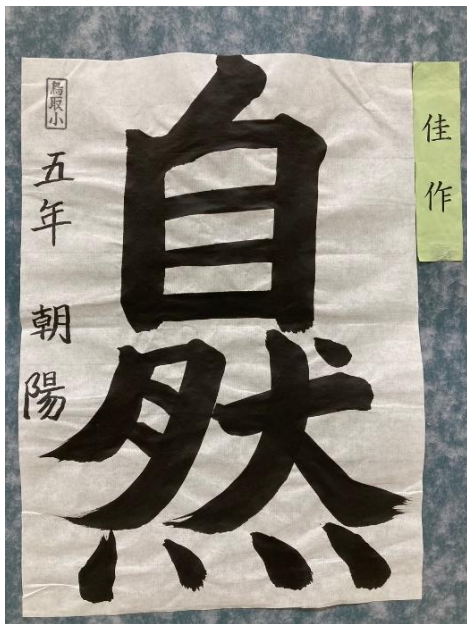 佳作
自然
鳥取小
五年 朝陽